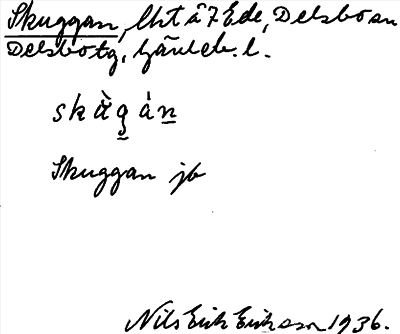 Skuggan, lht å 7 Ede, Delsbo sn
Delsbo tg, Gävleb. l.
skàg̰ án̲
Skuggan jb
Nils Erik Eriksson 1936.